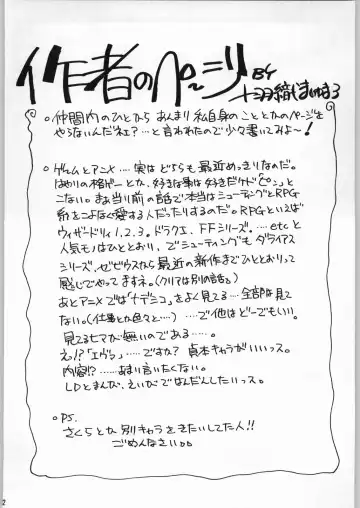 作者のページ
BY 十羽織ましゅまろ
○仲間内のひとから あんまり私自身のこととかのページを
やらないんだねェ?…と言われたので少々書いてみよ～!
○ゲームとアニメ……実はどちらも最近めっきりなのだ。
はやりの格ゲーとか、好きな事は好きだケドピンっと
こない。まぁ当り前の話で本当はシューティングとRPG
系をこよなく愛する人だったりするのだ。RPGといえば
ウィザードリィ1.2.3。ドラクエ、FFシリーズ。……etcと
人気モノはひととおり、でシューティングも ダライアス
シリーズ、ゼビウスから最近の新作までひととおりって
感じでやってますネ。(クリアは別の話る)
あとアニメでは「ナデシコ」をよく見てる……全部は見て
ない。(仕事とか色々と……) ……で他はどーでもいい。
見てるヒマが無いのである……。
え!?「エヴァ」……ですか? 貞本キャラがいいっス。
内容!? ……あまり言いたくない。
LDとまんが、えいがではんだんしたいっス。
○PS.
さくらとか 別キャラをきたいしてた人!!
ごめんなさい。。
2